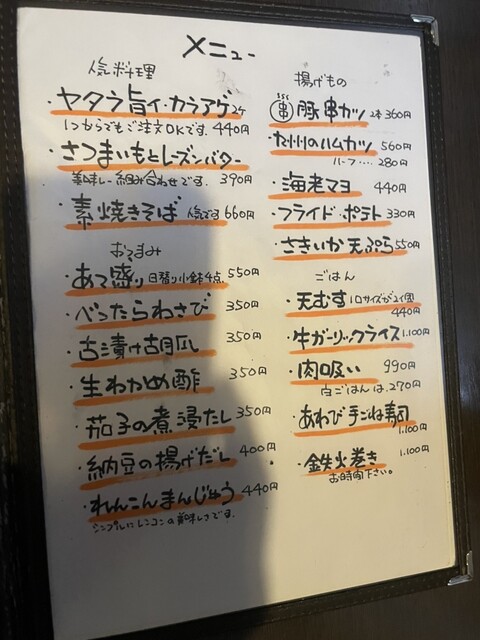 メニュー
人気料理
・ヤタラ旨イ・カラアゲ2ケ
1つからでもご注文OKです。440円
・さつまいもとレーズンバター
美味しー組み合わせです。390円
・素焼きそば 人気です 660円
おつまみ
・あて盛り 日替り小鉢4点 550円
・べったらわさび 350円
・古漬け胡瓜 350円
・生わかめ酢 350円
・茄子の煮浸だし 350円
・納豆の揚げだし 400円
・れんこんまんじゅう 440円
シンプルにレンコンの美味しさです。
揚げもの
・串 豚串カツ 2本 360円
・九州のハムカツ 560円
ハーフ… 280円
・海老マヨ 440円
・フライドポテト 330円
・さきいか天ぷら 550円
ごはん
・天むす 1口サイズが2個
440円
・牛ガーリックライス 1.100円
・肉吸い 990円
白ごはんは、270円
・あわび手ごね寿司
1.100円
・鉄火巻き 1.100円
お時間下さい。